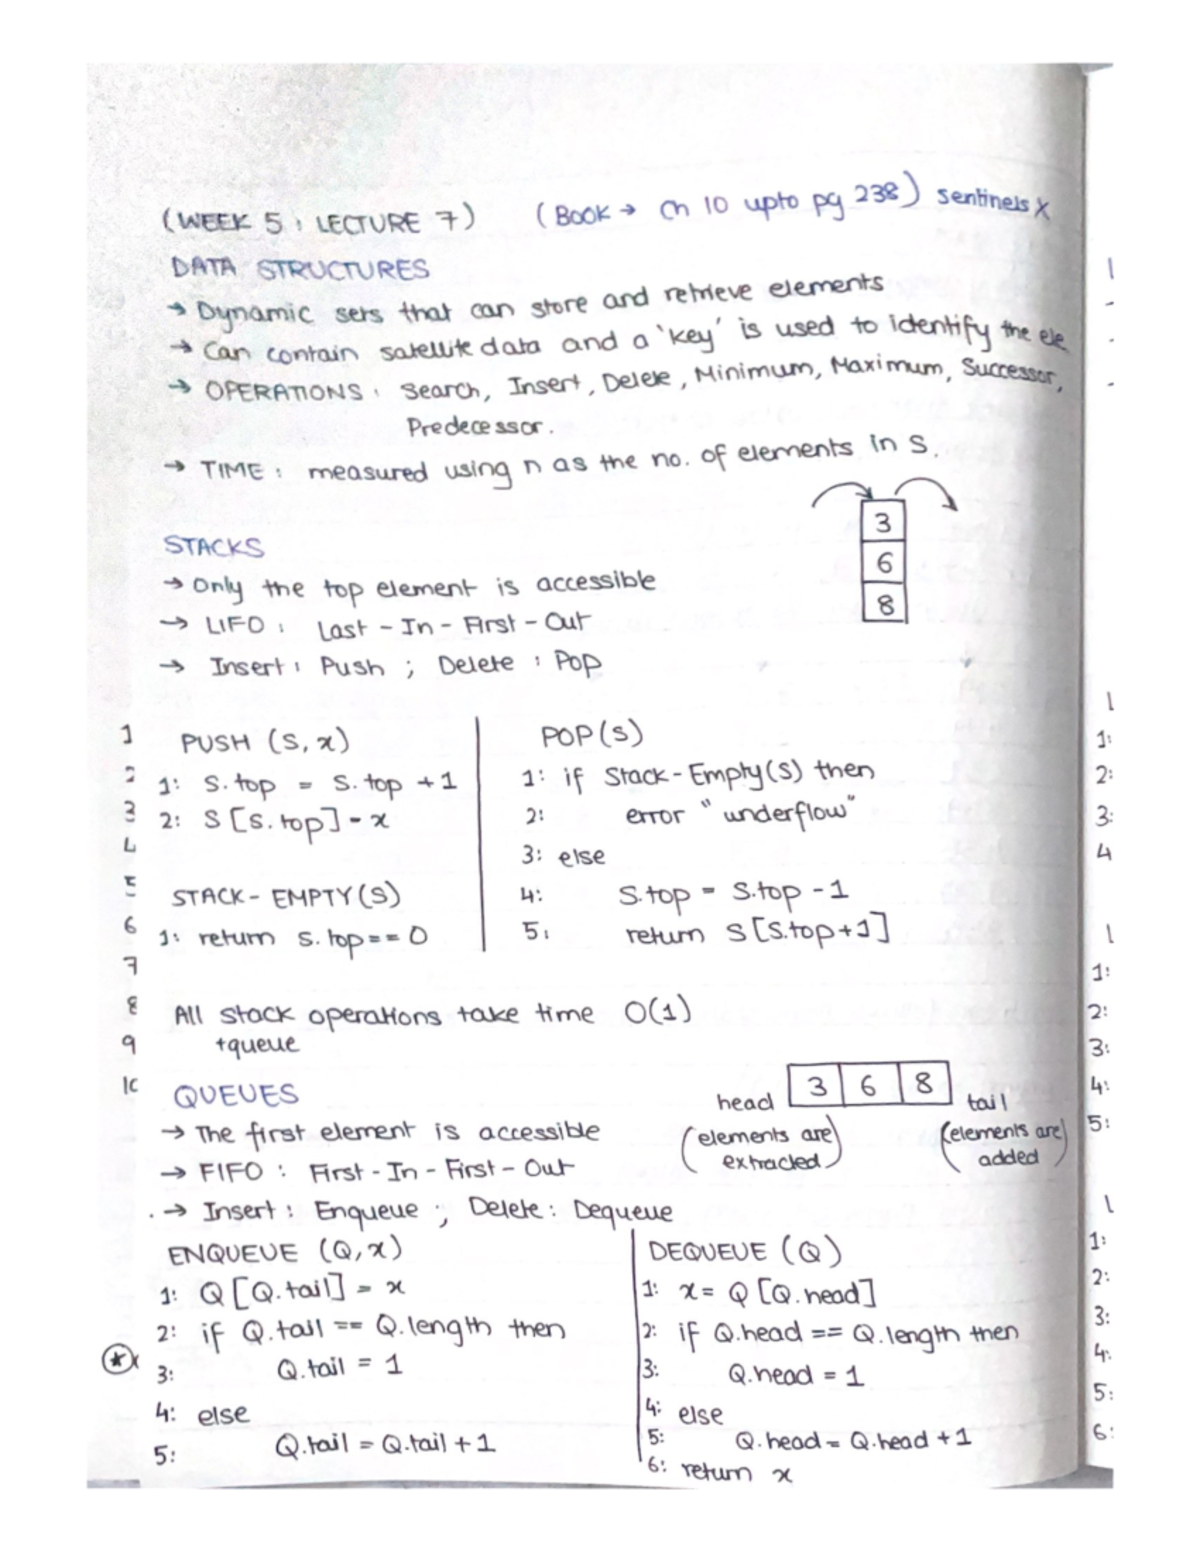 (WEEK 5 : LECTURE 7) (BOOK → Ch 10 upto pg 238) sentinels X
DATA STRUCTURES
→ Dynamic sets that can store and retrieve elements
→ Can contain satellite data and a 'key' is used to identify the ele
→ OPERATIONS : Search, Insert, Delete, Minimum, Maximum, Successor,
Predecessor.
→ TIME : measured using n as the no. of elements in S.
3
6
8
STACKS
→ Only the top element is accessible
→ LIFO : Last - In - First - Out
→ Insert : Push ; Delete : Pop
PUSH (S, x)
1: S.top = S.top + 1
2: S[S.top] = x
STACK - EMPTY(S)
1: return S.top == 0
POP(S)
1: if Stack - Empty(S) then
2: error "underflow"
3: else
4: S.top = S.top - 1
5: return S[S.top+1]
All stack operations take time O(1)
+queue
QUEUES
head 3 6 8 tail
(elements are extracted) (elements are added)
→ The first element is accessible
→ FIFO : First - In - First - Out
→ Insert : Enqueue ; Delete : Dequeue
ENQUEUE (Q, x)
1: Q[Q.tail] = x
2: if Q.tail == Q.length then
3: Q.tail = 1
4: else
5: Q.tail = Q.tail + 1
DEQUEUE (Q)
1: x = Q[Q.head]
2: if Q.head == Q.length then
3: Q.head = 1
4: else
5: Q.head = Q.head + 1
6: return x
1
2
3
4
5
6
7
8
9
10
1:
2:
3:
4
1:
2:
3:
4:
5:
1:
2:
3:
4:
5:
6: